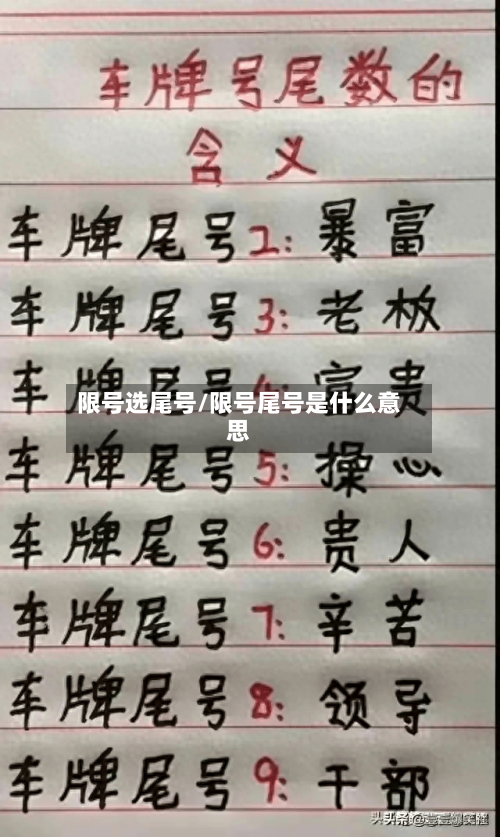 车牌号尾数的
含义
车牌尾号2:暴富
车牌尾号3:老板
车牌尾号4:富贵
限号选尾号/限号尾号是什么意
思
车牌尾号5:操心
车牌尾号6:贵人
车牌尾号7:辛苦
车牌尾号8:领导
车牌尾号9:干部
头条